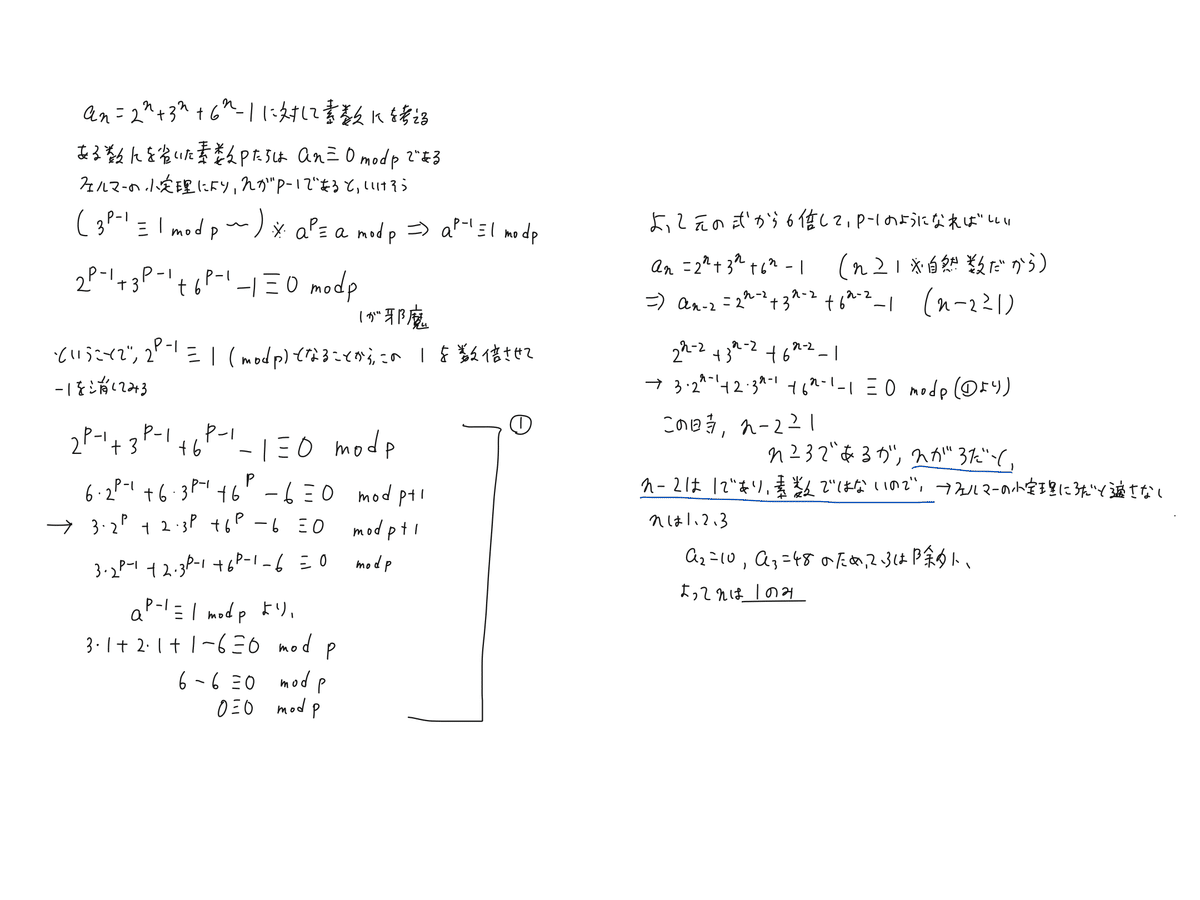 an = 2^n + 3^n + 6^n - 1 に対して素数kを考える
ある数kを省いた素数pたちは an ≡ 0 mod p である
フェルマーの小定理により, nがp-1であると, いけそう
(3^{p-1} ≡ 1 mod p 〜) ※ a^p ≡ a mod p ⇒ a^{p-1} ≡ 1 mod p
2^{p-1} + 3^{p-1} + 6^{p-1} - 1 ≡ 0 mod p
1が邪魔
ということで, 2^{p-1} ≡ 1 (mod p) となることから, この 1 を数倍させて
-1を消してみる
①
2^{p-1} + 3^{p-1} + 6^{p-1} - 1 ≡ 0 mod p
6・2^{p-1} + 6・3^{p-1} + 6^p - 6 ≡ 0 mod p+1
→ 3・2^p + 2・3^p + 6^p - 6 ≡ 0 mod p+1
3・2^{p-1} + 2・3^{p-1} + 6^{p-1} - 6 ≡ 0 mod p
a^{p-1} ≡ 1 mod p より,
3・1 + 2・1 + 1 - 6 ≡ 0 mod p
6 - 6 ≡ 0 mod p
0 ≡ 0 mod p
よって元の式から6倍して, p-1のようになればいい
an = 2^n + 3^n + 6^n - 1 (n ≥ 1 ※自然数だから)
⇒ a_{n-2} = 2^{n-2} + 3^{n-2} + 6^{n-2} - 1 (n-2 ≥ 1)
2^{n-2} + 3^{n-2} + 6^{n-2} - 1
→ 3・2^{n-1} + 2・3^{n-1} + 6^{n-1} - 1 ≡ 0 mod p (①より)
この時, n-2 ≥ 1
n ≥ 3であるが, nが3だと,
n-2は1であり, 素数ではないので, → フェルマーの小定理に3だと適さない
nは1、2、3
a2=10, a3=48 のため, 2、3は除外、
よってnは 1のみ